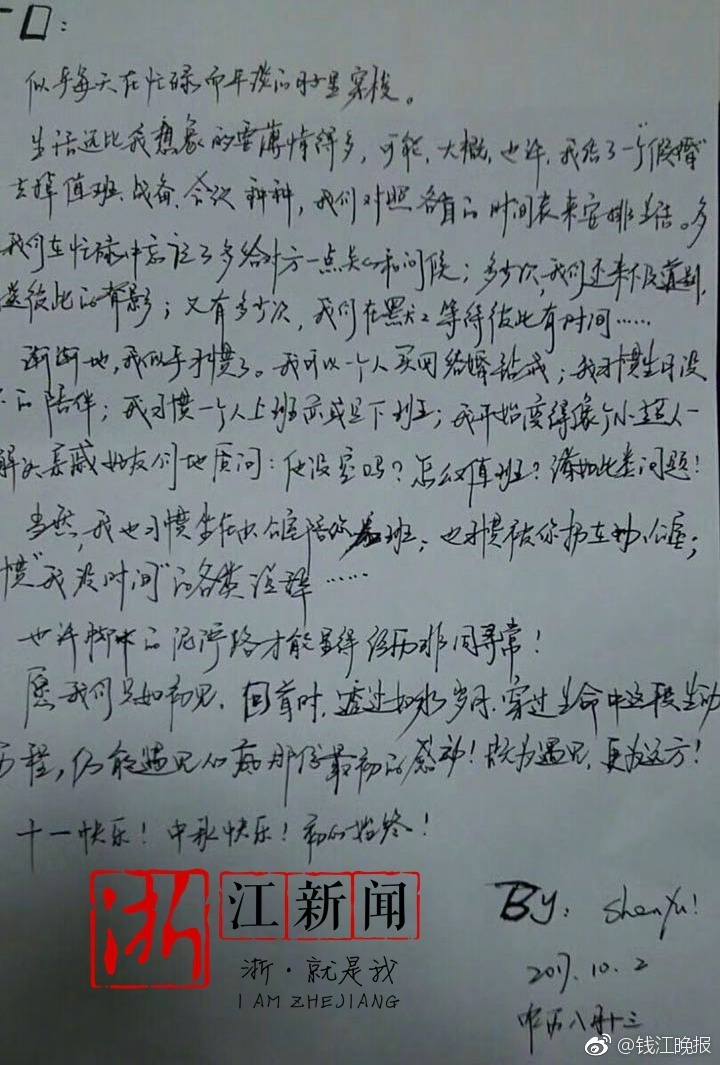 口：
似乎每天在忙碌而平淡的日子里穿梭。
生活远比我想象的要薄情得多，可能，大概，也许，我结了一个"假婚"
去掉值班、战备、会议种种，我们对照各自的时间表来安排生活。多
我们在忙碌中忘记了多给对方一点关心和问候；多少次，我们还来不及道别，
彼此的背影；又有多少次，我们在默默等待彼此有时间……
渐渐地，我似乎习惯了。我可以一个人买回结婚钻戒；我习惯生日没
的陪伴；我习惯一个人上班亦或是下班；我开始变得像个小超人一
解决亲戚好友们地质问：他没空吗？怎么又值班？诸如此类问题！
当然，我也习惯坐在办公室陪你班；也习惯被你扔在办公室；
惯"我没时间"的各类注释……
也许脚下的泥泞路才能显得经历非同寻常！
愿我们只如初见，回首时，透过如水岁月，穿过生命中这段生动
历程，仍能遇见心底那份最初的感动！既为遇见，更为远方！
十一快乐！中秋快乐！初心始终！
BY: ShenYu!
2017.10.2
农历八月十三
浙江新闻
浙·就是我
I AM ZHEJIANG
@钱江晚报